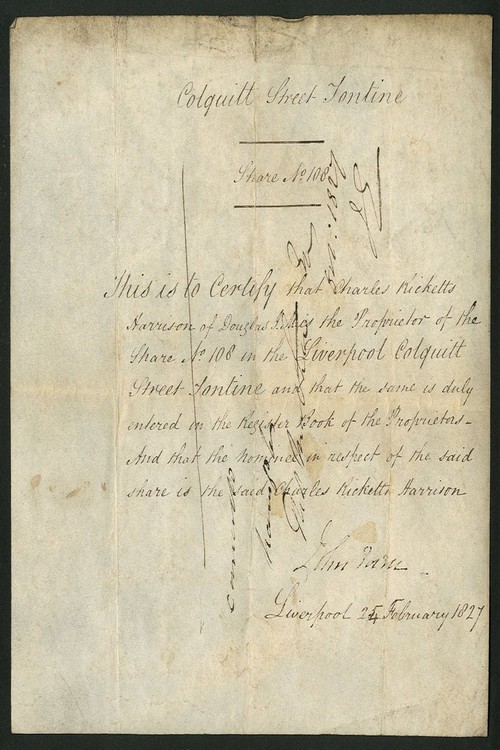 Colquitt Street Tontine
Share No. 108
This is to Certify that Charles Ricketts
Harrison of Douglas is the Proprietor of the
Share No. 108 in the Liverpool Colquitt
Street Tontine and that the same is duly
entered in the Register Book of the Proprietors_
And that the nominee in respect of the said
share is the said Charles Ricketts Harrison
John
Liverpool 24 February 1827